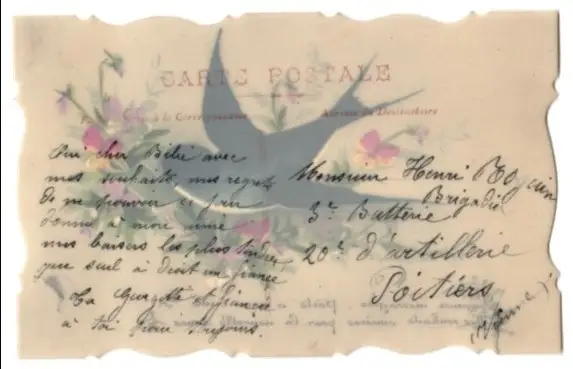 CARTE POSTALE
Correspondance
Adresse du Destinataire
Oui cher Bébé avec
mes souhaits, mes regrets
de ne pouvoir ce jour
donner à mon aimé
mes baisers les plus tendres
que seul à droit un fiancé
Ta Fiancée
à toi pour toujours.
Monsieur Henri
Brigadier
3e Batterie
20e d'artillerie
Poitiers
(Vienne)